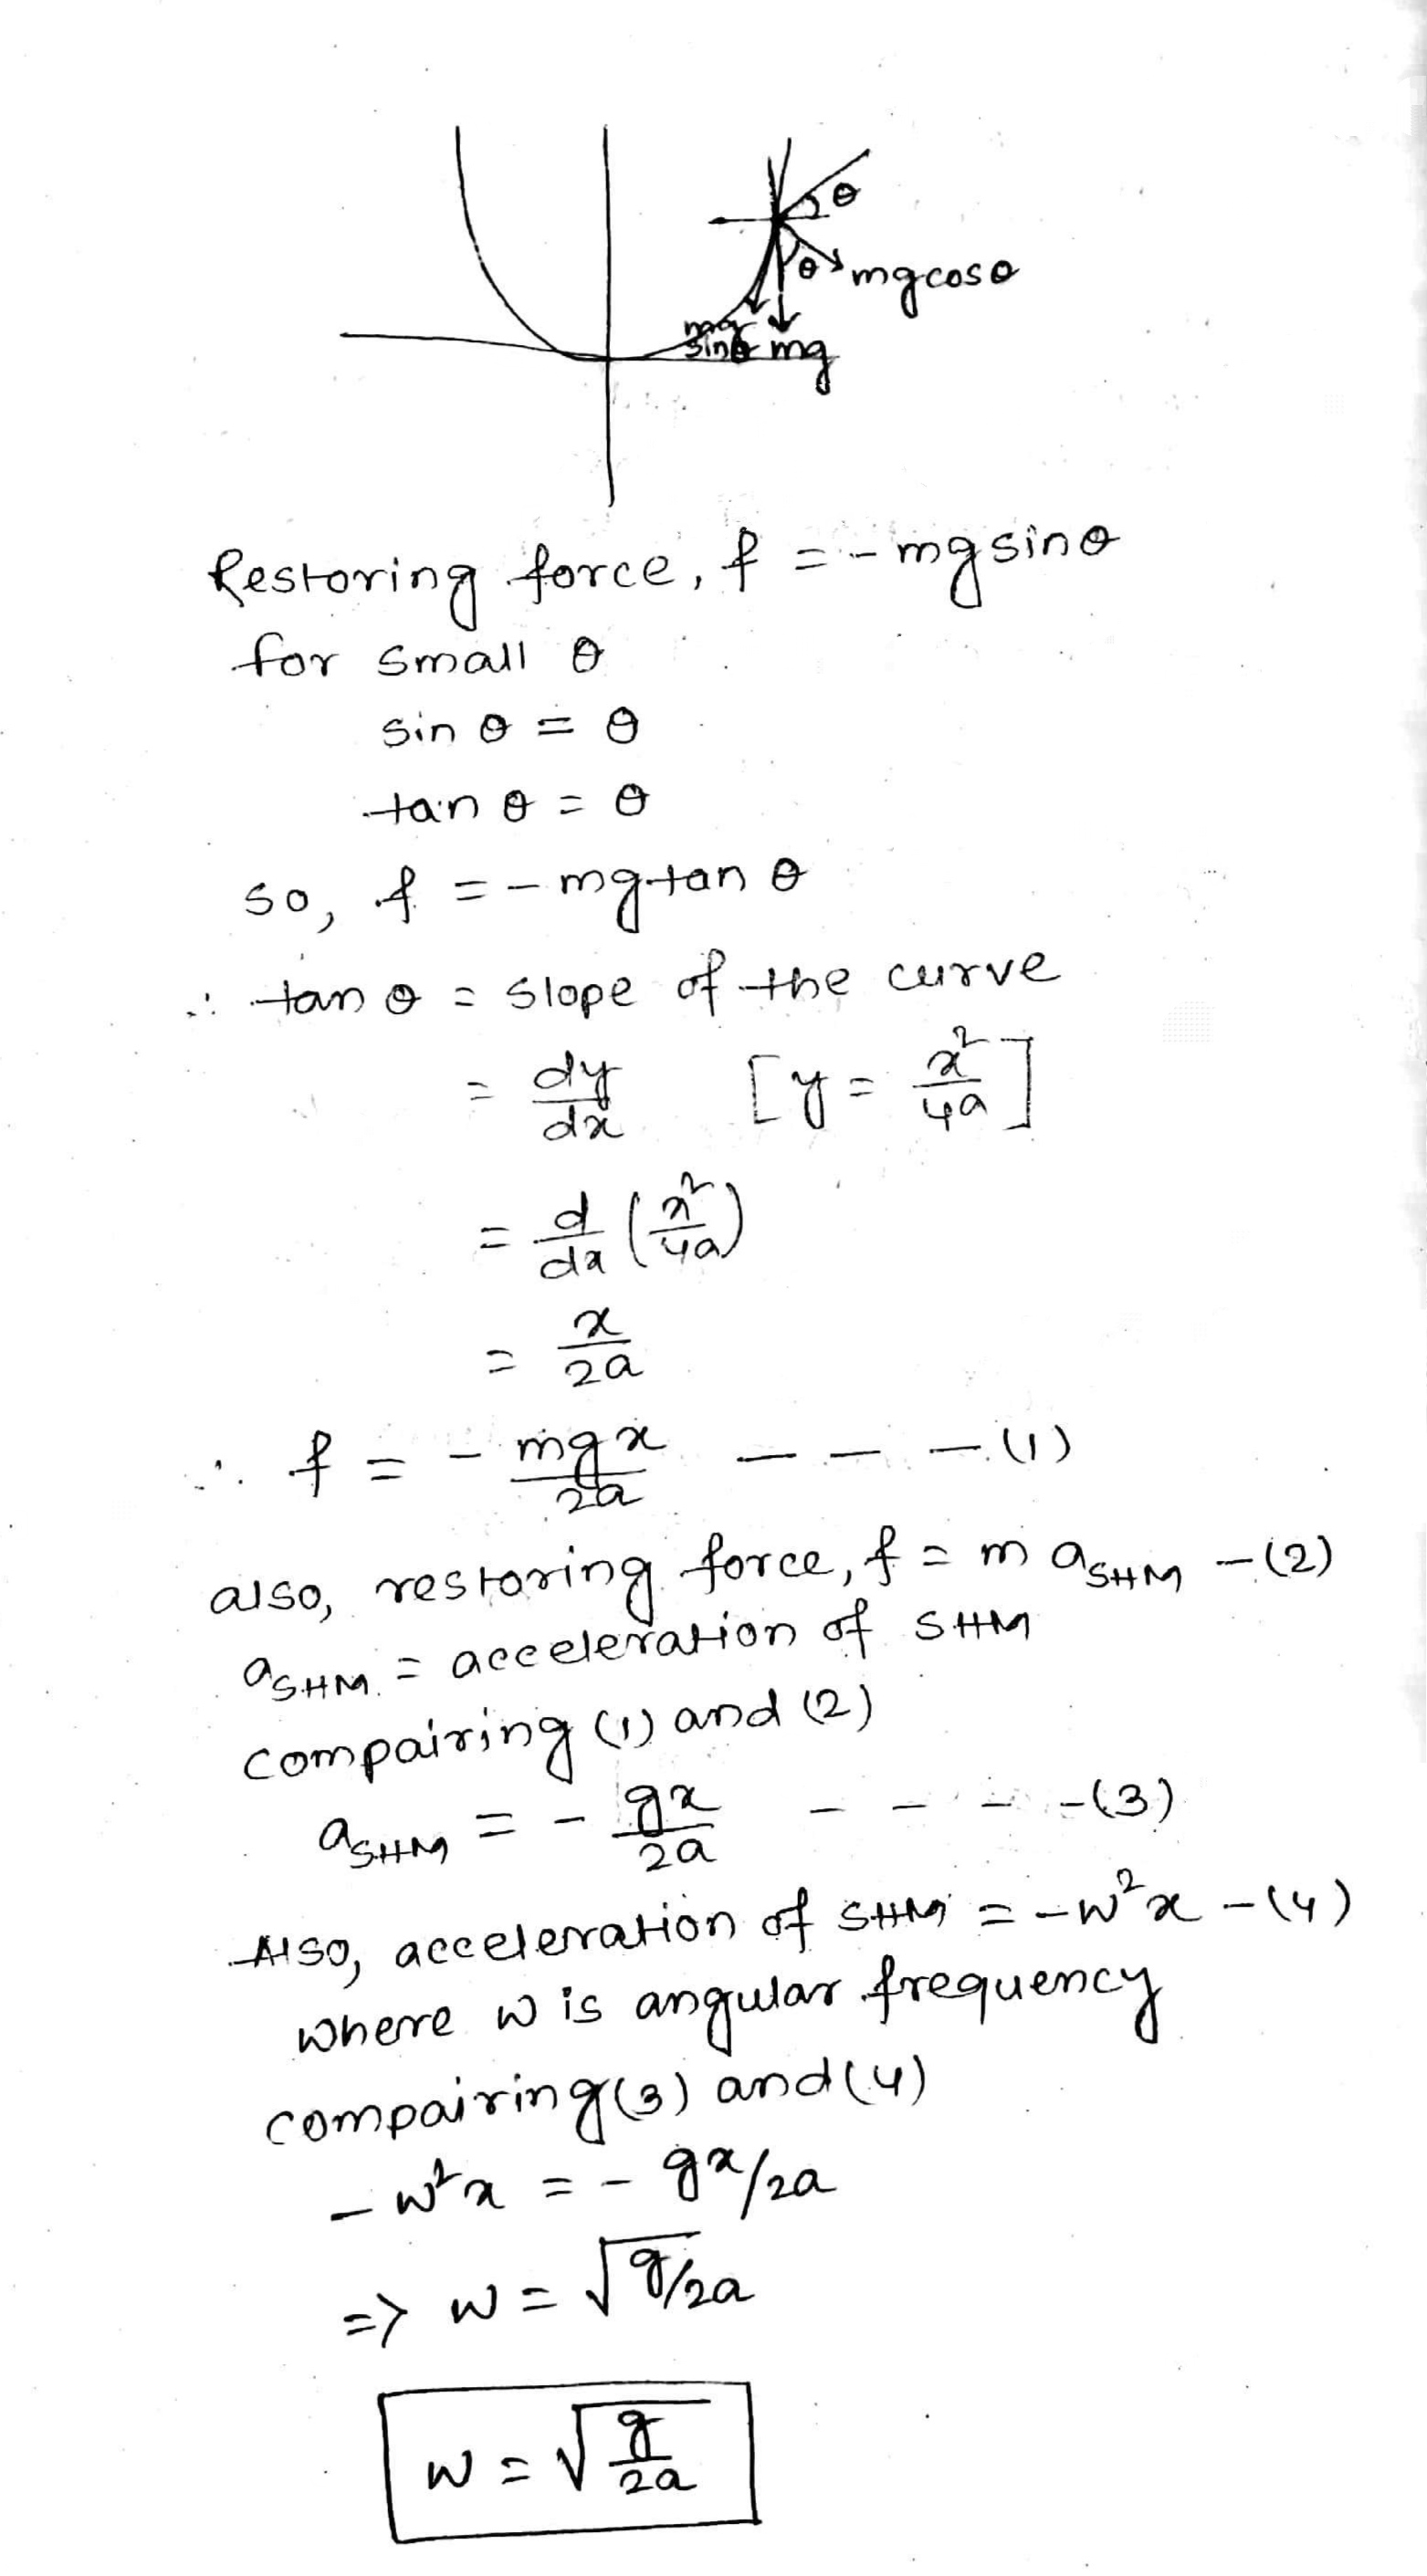 θ
θ
mgcosθ
mg
sinθ
mg
Restoring force, f = - mgsinθ
for small θ
sin θ = θ
tan θ = θ
so, f = - mgtan θ
∴ tan θ = slope of the curve
= dy/dx [y = x²/4a]
= d/dx (x²/4a)
= x/2a
∴ f = - mgx/2a - - - (1)
also, restoring force, f = m a_SHM - (2)
a_SHM = acceleration of SHM
compairing (1) and (2)
a_SHM = - gx/2a - - - - (3)
Also, acceleration of SHM = - w²x - (4)
where w is angular frequency
compairing (3) and (4)
- w²x = - gx/2a
=> w = √g/2a
w = √g/2a